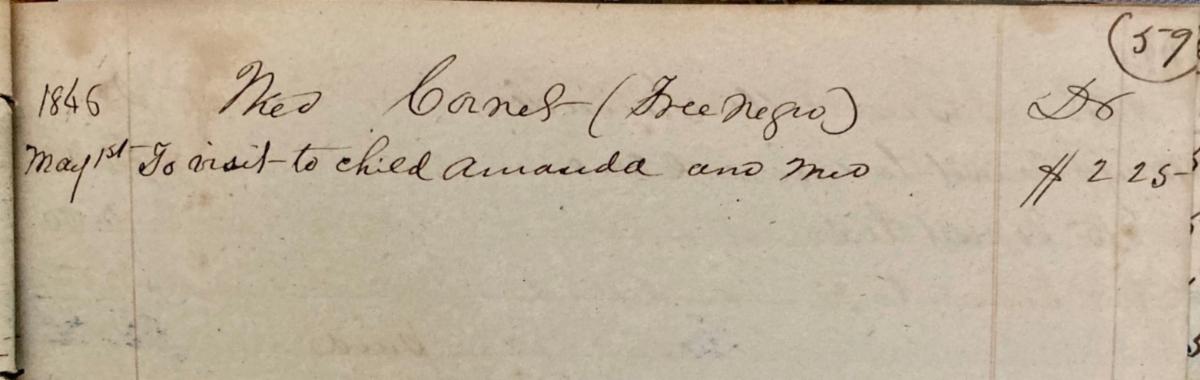 (59
1846 Cornes (Free Negro) Dr
May 1st To visit to child Amanda and Med $2 25